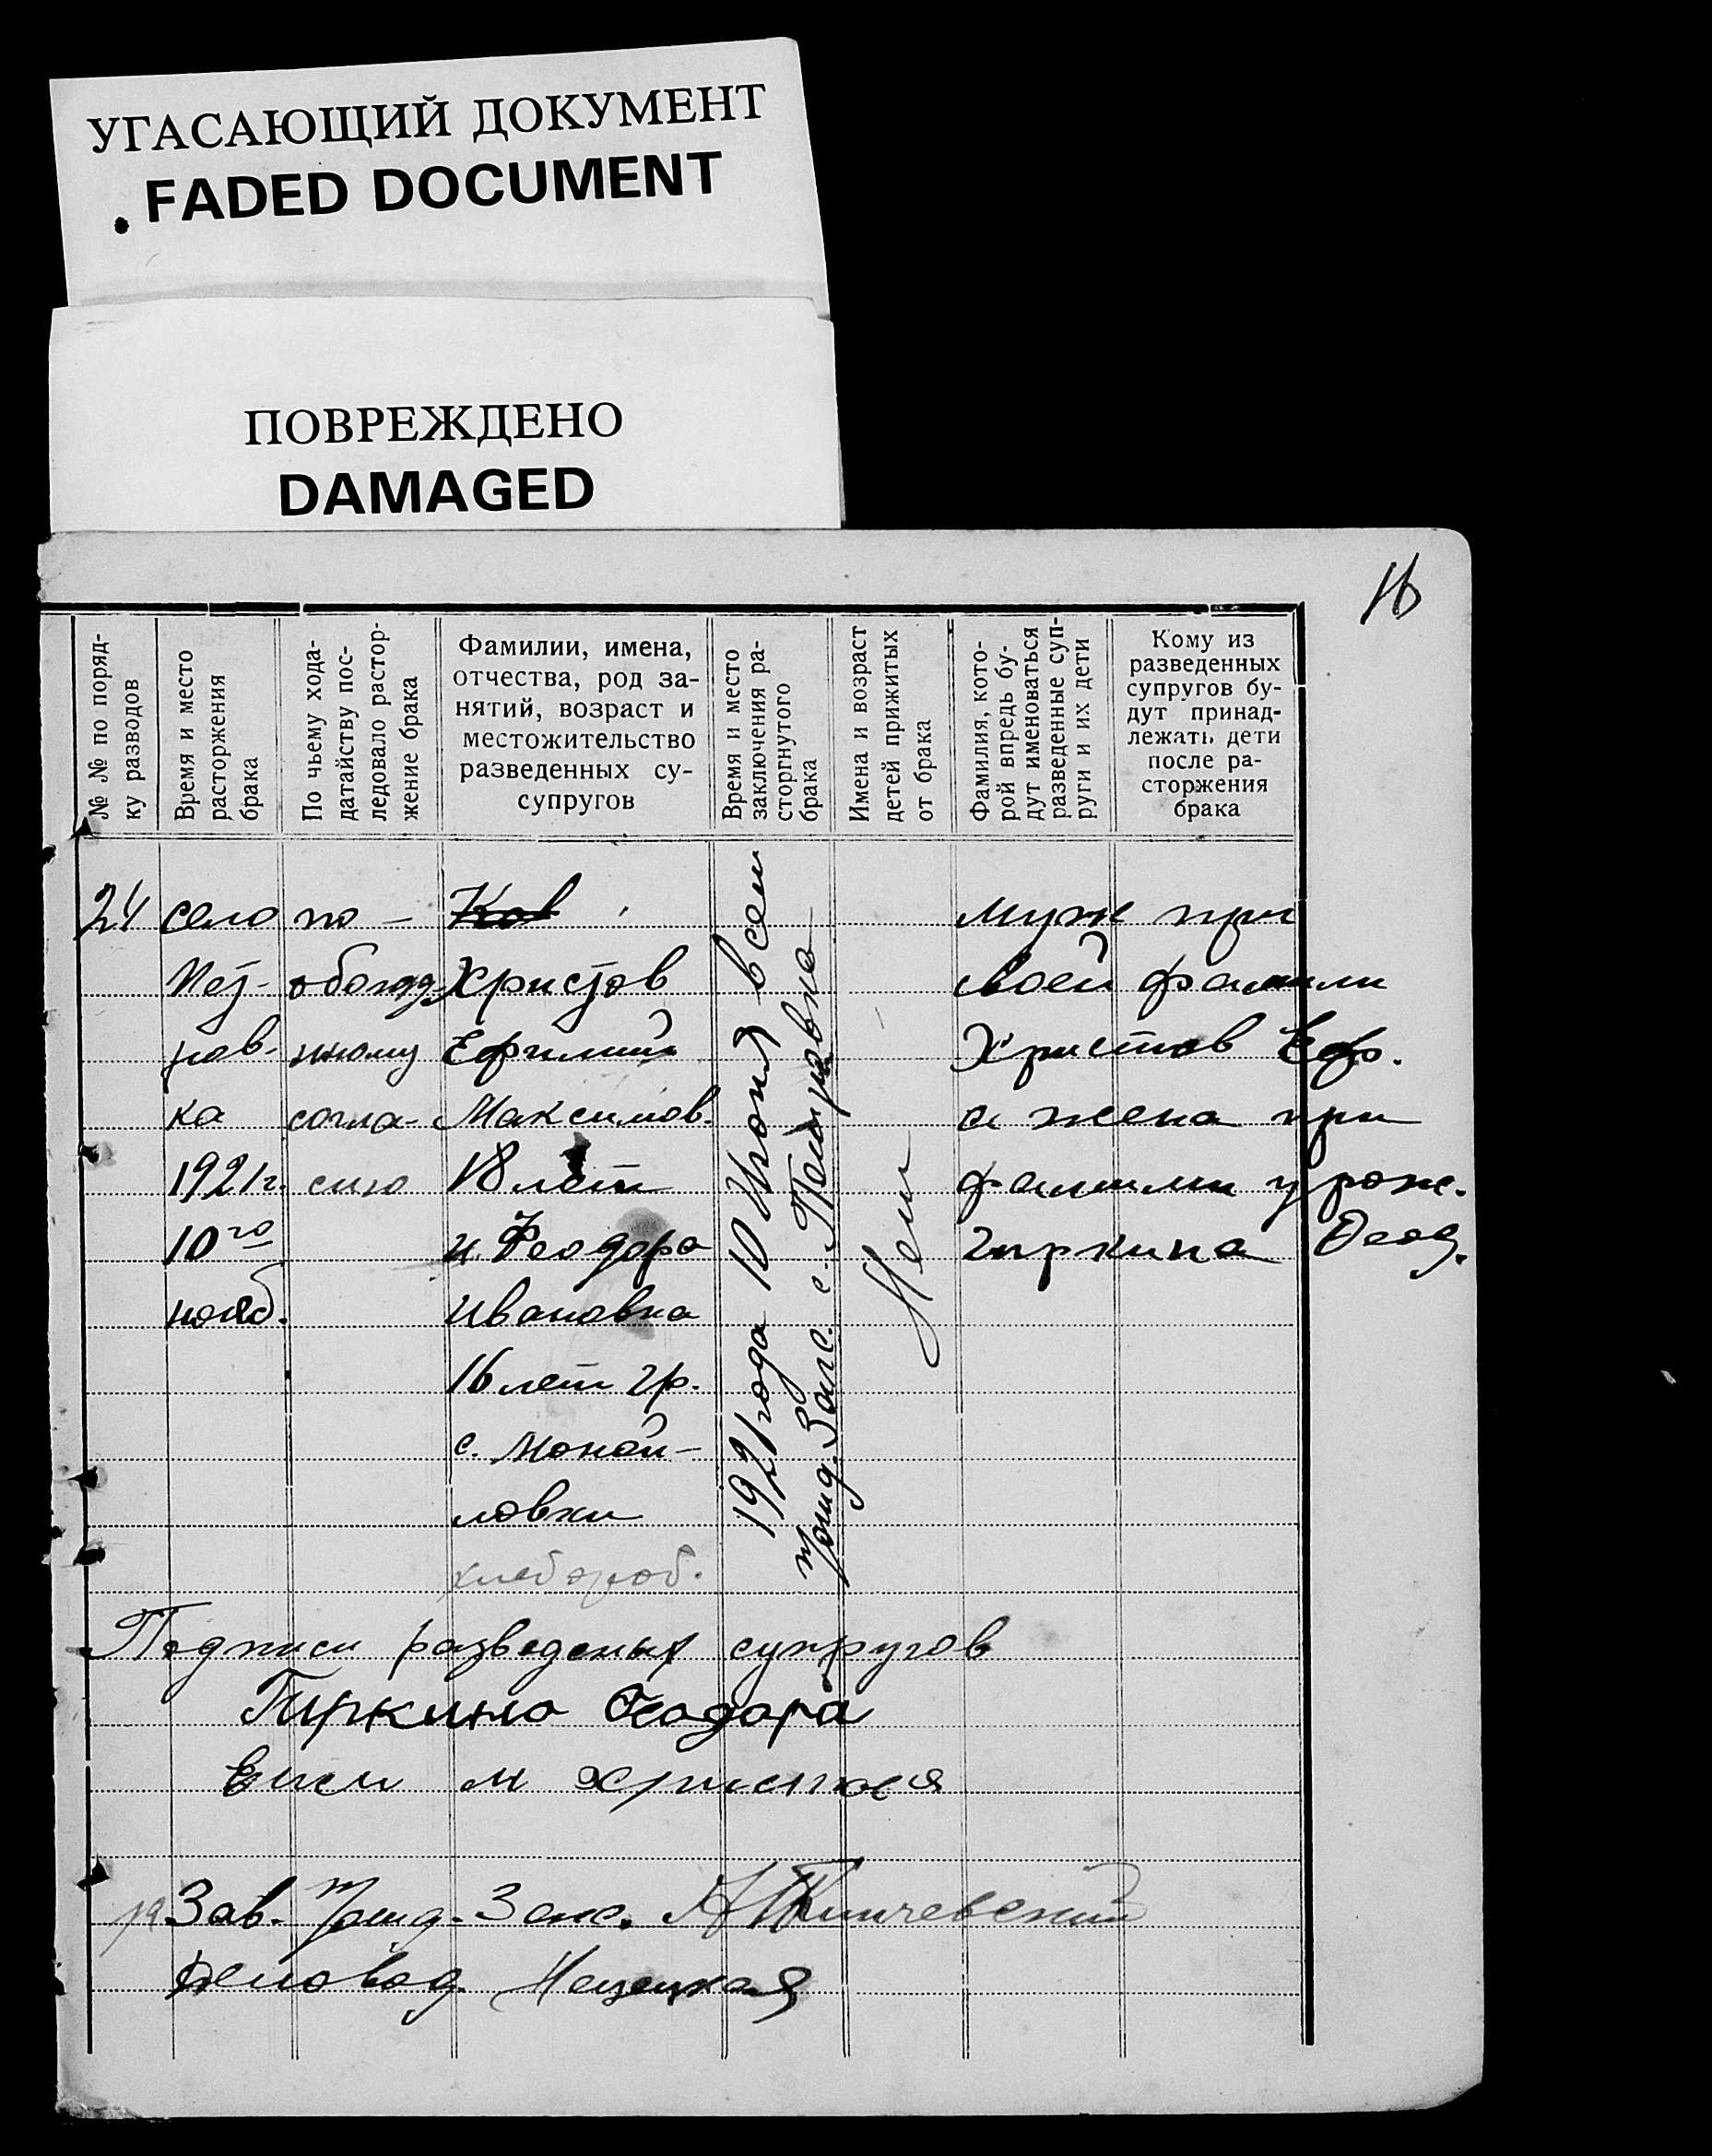 УГАСАЮЩИЙ ДОКУМЕНТ
FADED DOCUMENT
ПОВРЕЖДЕНО
DAMAGED
16
№ № по поряд-
ку разводов
Время и место
расторжения
брака
По чьему хода-
датайству пос-
ледовало растор-
жение брака
Фамилии, имена,
отчества, род за-
нятий, возраст и
местожительство
разведенных су-
супругов
Время и место
заключения ра-
сторгнутого
брака
Имена и возраст
детей прижитых
от брака
Фамилия, кото-
рой впредь бу-
дут именоваться
разведенные суп-
руги и их дети
Кому из
разведенных
супругов бу-
дут принад-
лежать дети
после ра-
сторжения
брака
24
село
Пет-
ров-
ка
1921г.
10го
нояб.
по-
обоюд-
ному
согла-
сию
Ков
Христов
Ефимий
Максимов.
18 лет
и Феодора
Ивановна
16 лет гр.
с. Монай-
ловки
хлебороб.
1921 года 10 Июня в сел
Загс. с. Петровка
Нет
муж при
своей фамили
Христов Еф.
а жена при
фамилии урож.
Гиркина Феод.
Подписи разведеных супругов
Гиркина Феодора
м
Зав. Загс.
Деловод.